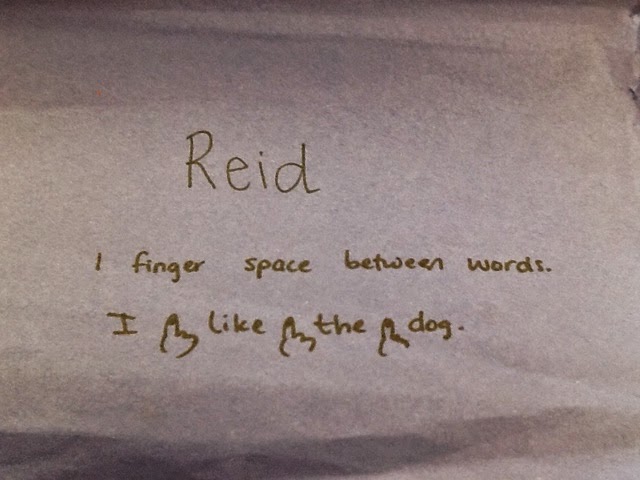 Reid
1 finger space between words.
I like the dog.